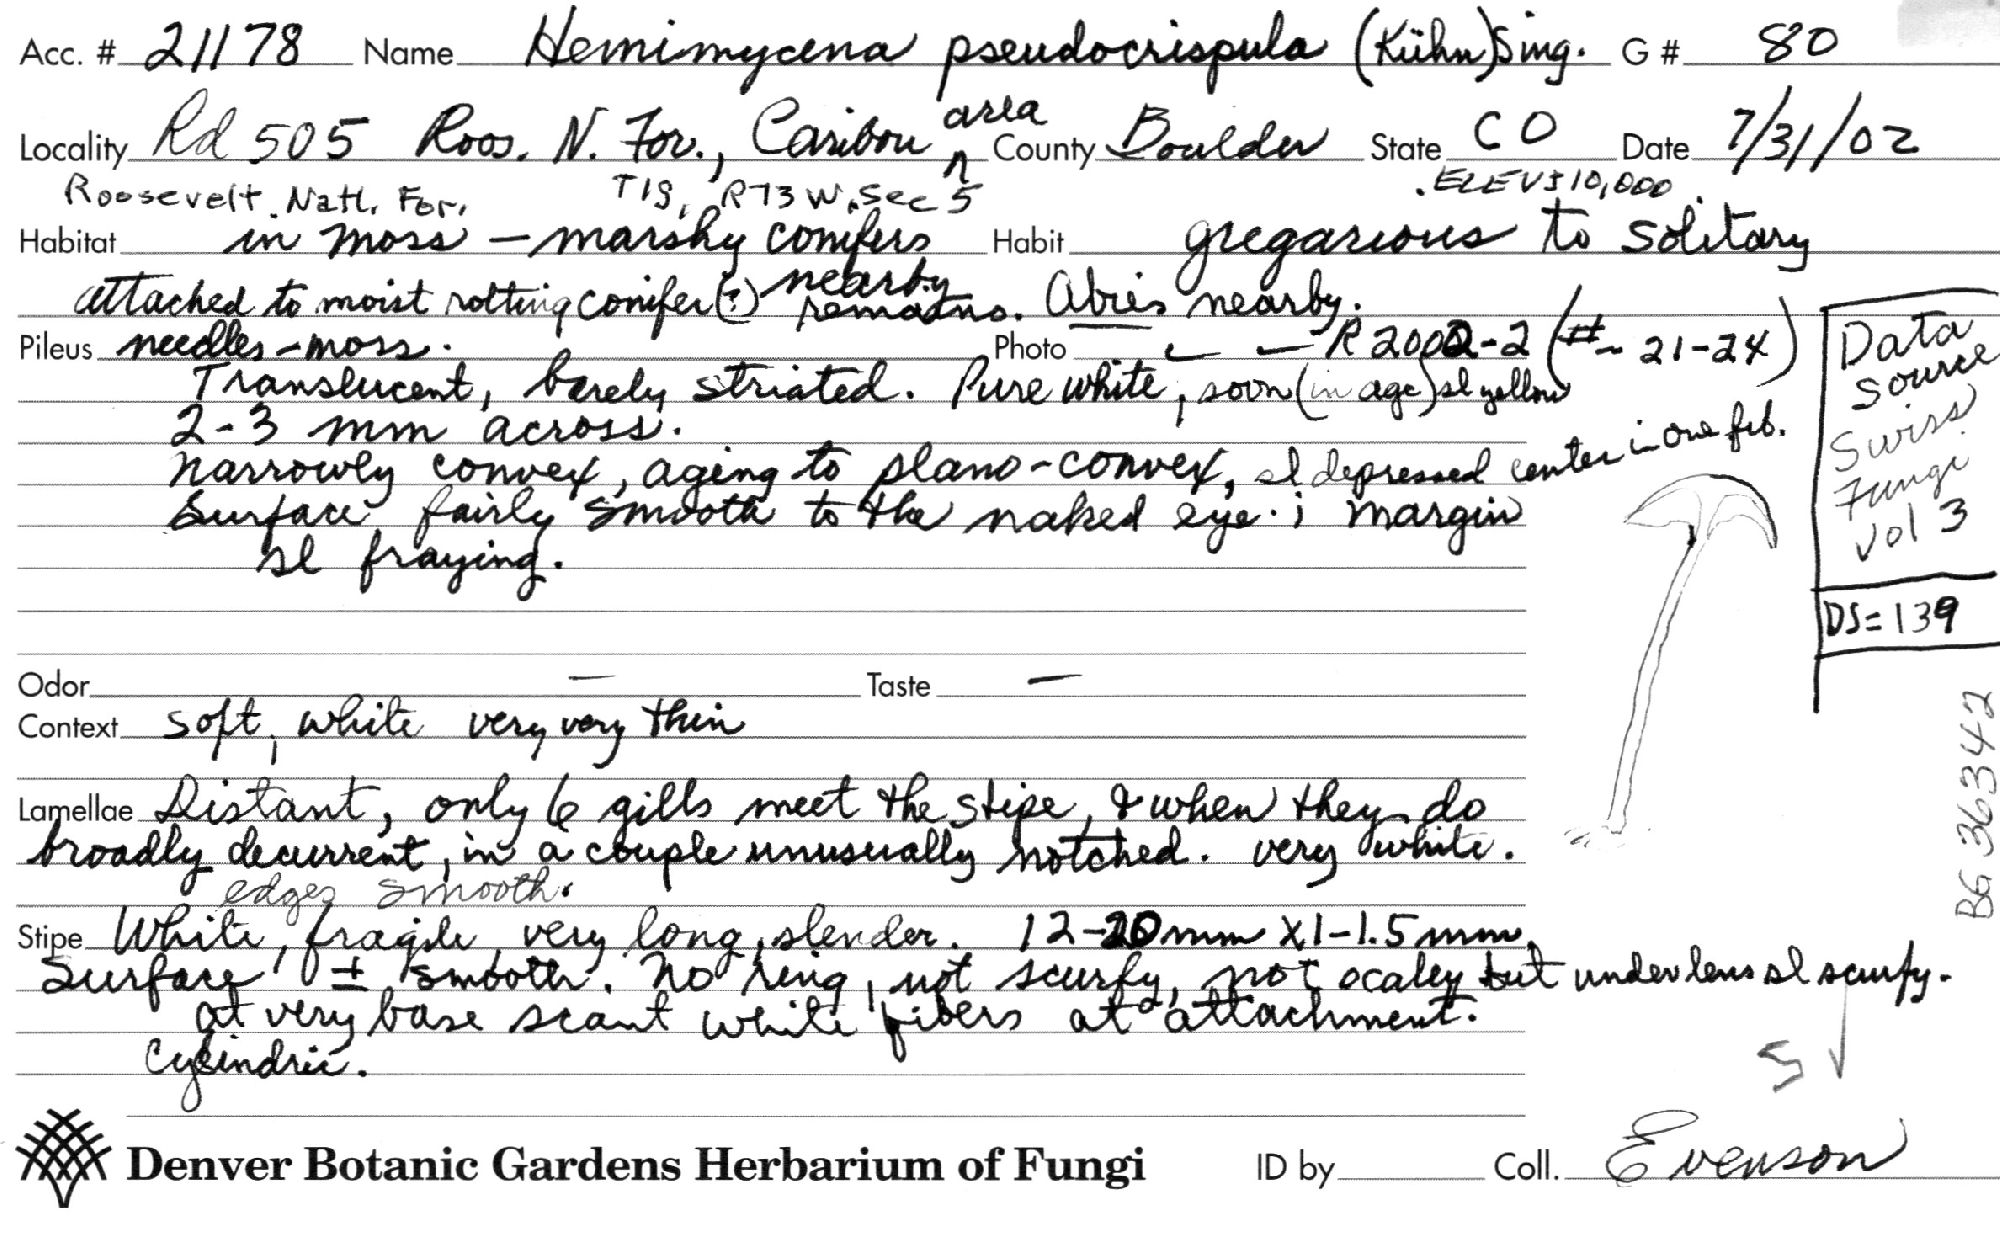 Acc. # 21178 Name Hemimycena pseudocrispula (Kühn) Sing. G # 80
Locality Rd 505 Roos. N. For., Caribou area County Boulder State CO Date 7/31/02
Roosevelt Natl. For. T1S, R73W, Sec 5 ELEV ± 10,000
Habitat in moss – marshy conifers Habit gregarious to solitary
attached to moist rotting conifer (?) nearby remains. Abies nearby.
Pileus needles – moss. Photo R 2002-2 (#~ 21-24)
Translucent, barely striated. Pure white, soon (in age) sl yellow
2-3 mm across.
narrowly convex, aging to plano-convex, sl depressed center in one frb.
Surface fairly smooth to the naked eye; margin
sl fraying.
Data
Source
Swiss
Fungi
Vol 3
DS= 139
BG 36342
Odor – Taste –
Context soft, white very very thin
Lamellae Distant, only 6 gills meet the stipe, & when they do
broadly decurrent, in a couple unusually notched. very white.
edges smooth.
Stipe White, fragile, very long, slender. 12-20mm x 1-1.5mm,
Surface ± smooth. No ring, not scurfy, not scaley but under lens sl scurfy.
at very base scant white fibers at attachment.
Cylindric.
S √
Denver Botanic Gardens Herbarium of Fungi ID by Coll. Evenson